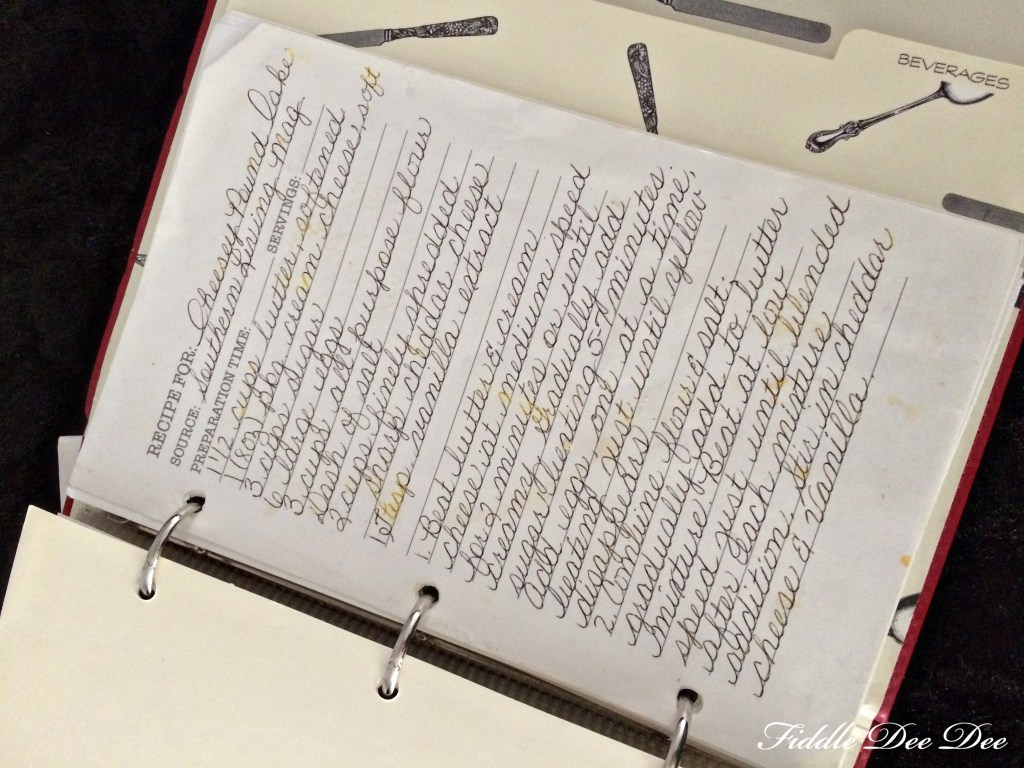 BEVERAGES
RECIPE FOR: Cheesey Pound Cake
SOURCE: Southern Living Mag.
PREPARATION TIME: SERVINGS:
1 1/2 cups butter, softened
1 (8oz) pkg cream cheese, soft
3 cups sugar
6 large eggs
3 cups all purpose flour
Dash of salt
2 cups finely shredded
sharp cheddar cheese
1 tsp. vanilla extract
1. Beat butter & cream
cheese at medium speed
for 2 minutes or until
creamy. Gradually add
sugar, beating 5-7 minutes.
Add eggs one at a time,
beating just until yellow
disappears.
2. Combine flour & salt;
Gradually add to butter
mixture. Beat at low
speed just until blended
after each mixture
addition. Stir in cheddar
cheese & vanilla.
Fiddle Dee Dee